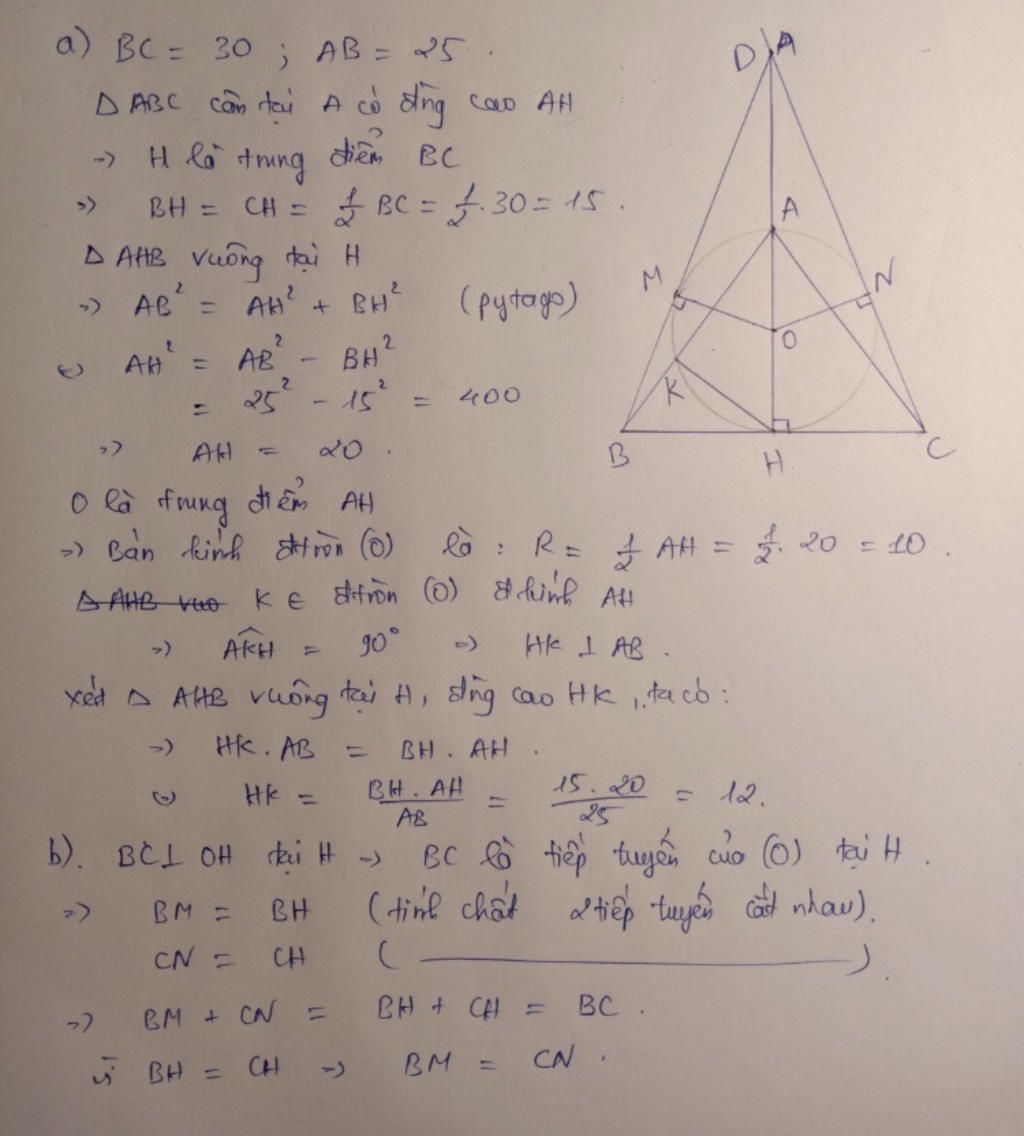 a) BC = 30 ; AB = 25 .
Δ ABC cân tại A có đg̃ cao AH
=> H là trung điểm BC
=> BH = CH = 1/2 BC = 1/2 . 30 = 15 .
Δ AHB vuông tại H
=> AB² = AH² + BH² (pytago)
<=> AH² = AB² - BH²
= 25² - 15² = 400
=> AH = 20 .
O là trung điểm AH
=> Bán kính đtròn (O) là : R = 1/2 AH = 1/2 . 20 = 10 .
Δ AHB vuo K ∈ đtròn (O) đkính AH
=> AKH = 90° => HK ⊥ AB .
xét Δ AHB vuông tại H, đg̃ cao HK, ta có :
=> HK . AB = BH . AH .
<=> HK = BH . AH / AB = 15 . 20 / 25 = 12.
b). BC ⊥ OH tại H => BC là tiếp tuyến của (O) tại H .
=> BM = BH (tính chất 2 tiếp tuyến cắt nhau).
CN = CH ( ——— ).
=> BM + CN = BH + CH = BC .
vì BH = CH => BM = CN .
D A
A
M
N
O
K
B
H
C